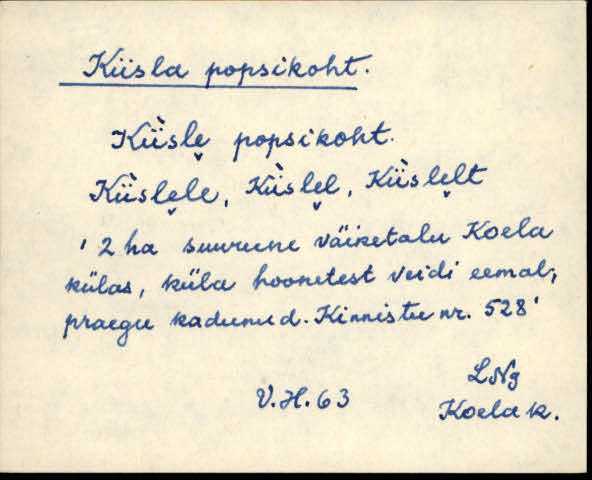 Kiisla popsikoht.
Kìisle̬ popsikoht.
Kìisle̬le, Kìisle̬l, Kìisle̬lt
' 2 ha suurune väiketalu Koela
külas, küla hoonetest veidi eemal,
praegu kadunud. Kinnistu nr. 528'
LNg
V.H. 63
Koela k.